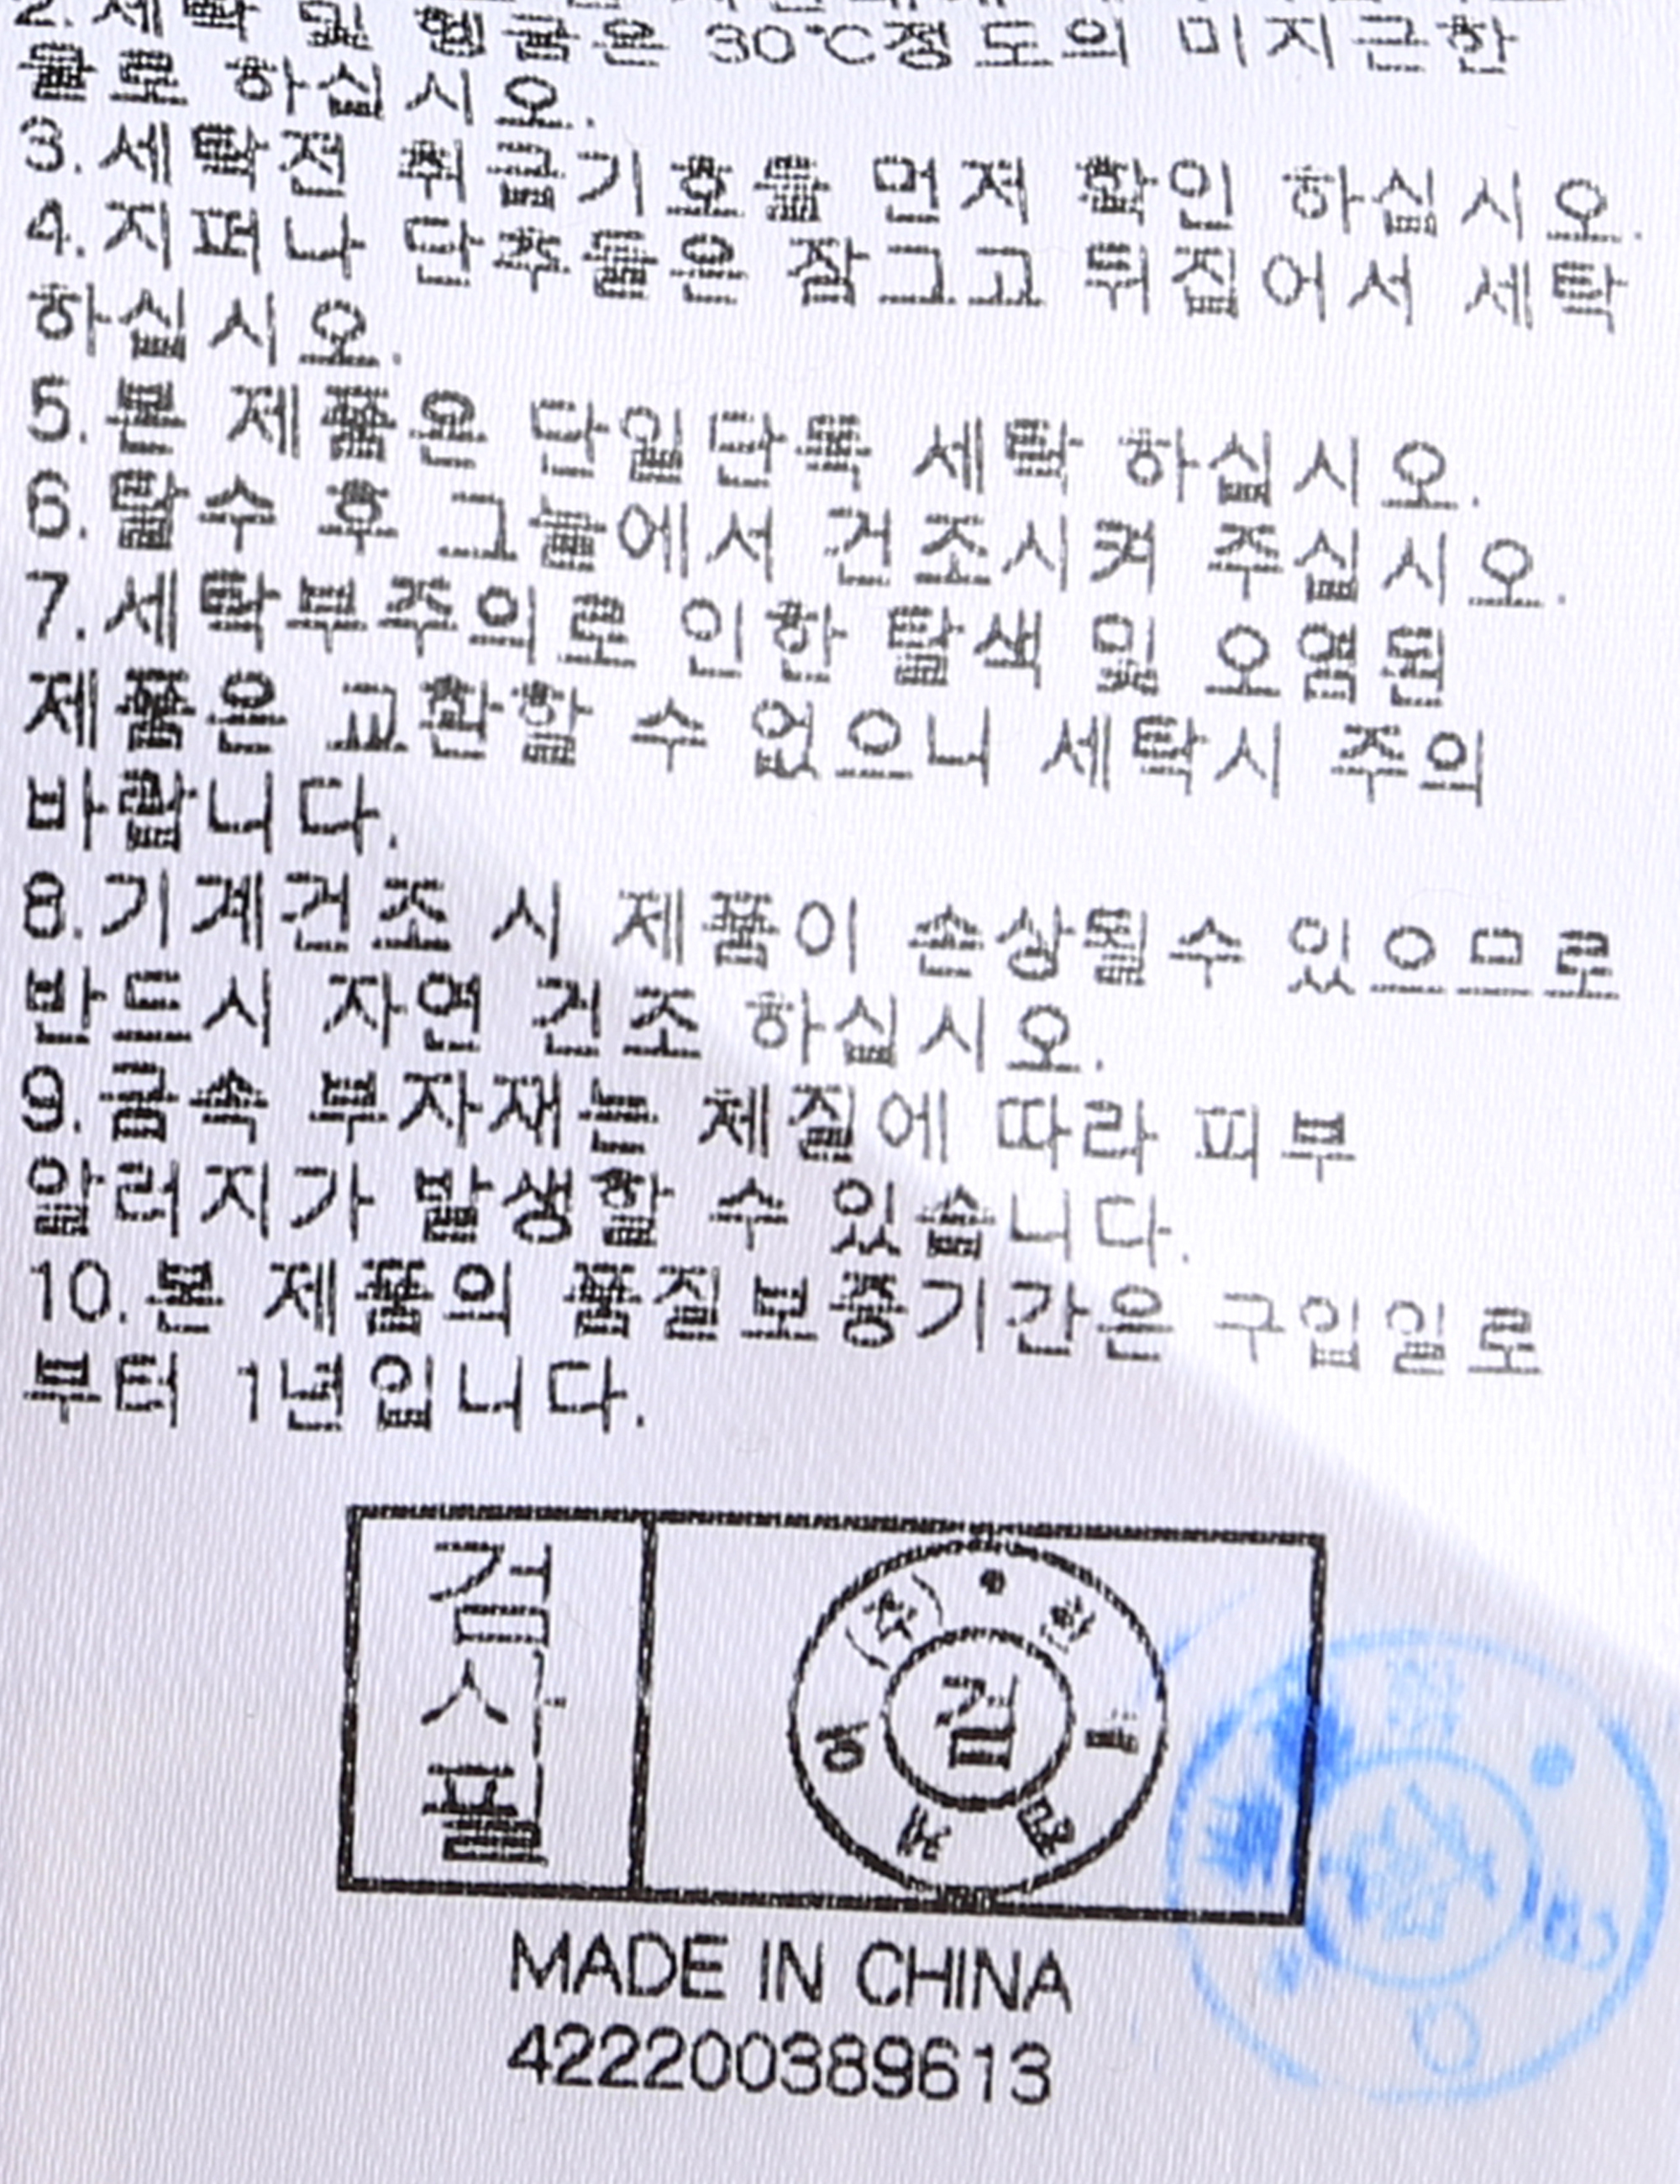 2.세탁 및 헹굼은 30℃정도의 미지근한
물로 하십시오.
3.세탁전 취급기호를 먼저 확인 하십시오.
4.지퍼나 단추들은 잠그고 뒤집어서 세탁
하십시오.
5.본 제품은 단일단독 세탁 하십시오.
6.탈수 후 그늘에서 건조시켜 주십시오.
7.세탁부주의로 인한 탈색 및 오염된
제품은 교환할 수 없으니 세탁시 주의
바랍니다.
8.기계건조 시 제품이 손상될수 있으므로
반드시 자연 건조 하십시오.
9.금속 부자재는 체질에 따라 피부
알러지가 발생할 수 있습니다.
10.본 제품의 품질보증기간은 구입일로
부터 1년입니다.
검사필
검
MADE IN CHINA
422200389613